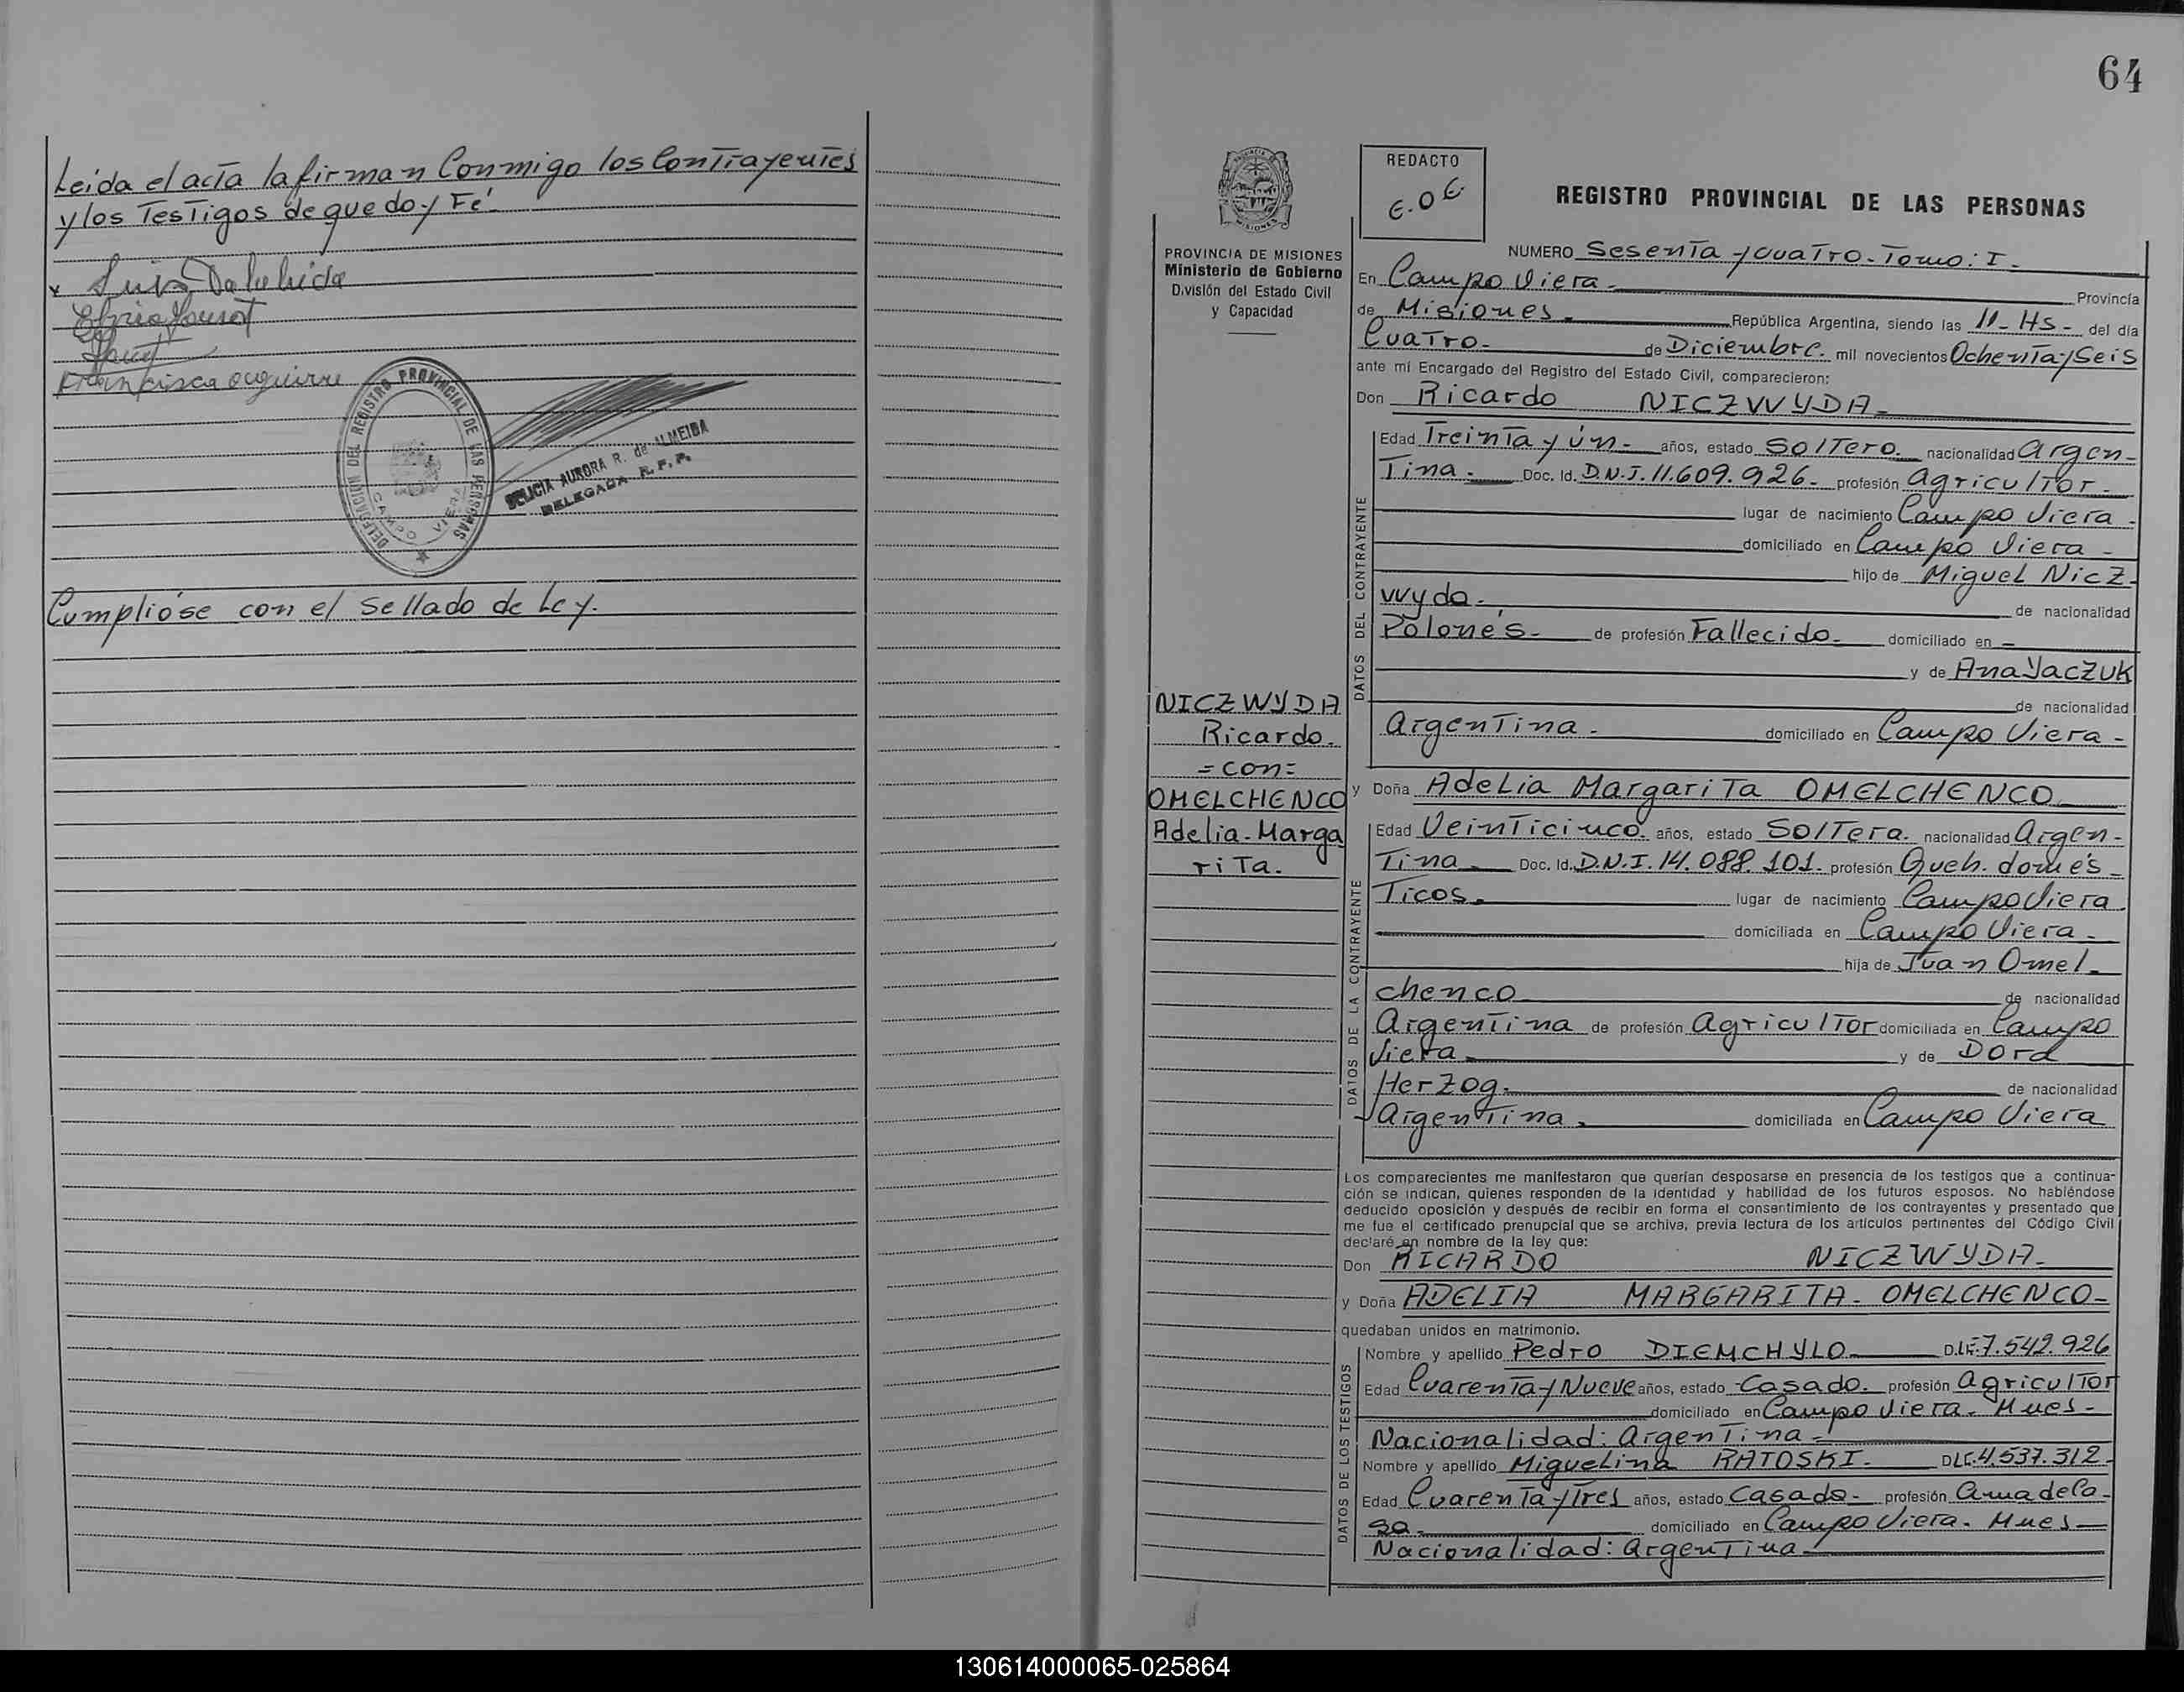 Leída el acta la firman Conmigo los Contrayentes
y los Testigos de que doy Fé.
Francisca
DELEGACION DEL REGISTRO PROVINCIAL DE LAS PERSONAS
CAMPO VIERA
AURORA R. de ALMEIDA
DELEGADA R. P. P.
Cumplióse con el sellado de Ley.
64
REDACTO
E.O.E.
REGISTRO PROVINCIAL DE LAS PERSONAS
PROVINCIA DE MISIONES
Ministerio de Gobierno
División del Estado Civil
y Capacidad
NICZWYDA
Ricardo.
=con=
OMELCHENCO
Adelia-Marga
riTa.
NUMERO Sesenta y cuatro-Tomo: I-
En Campo Viera- Provincia
de Misiones- República Argentina, siendo las 11-Hs- del día
Cuatro- de Diciembre- mil novecientos Ochenta y Seis
ante mí Encargado del Registro del Estado Civil, comparecieron:
Don Ricardo NICZWYDA-
DATOS DEL CONTRAYENTE
Edad Treinta y ún- años, estado Soltero- nacionalidad Argen-
tina- Doc. Id. D.N.I. 11.609.926- profesión Agricultor-
lugar de nacimiento Campo Viera-
domiciliado en Campo Viera-
hijo de Miguel Nicz-
wyda- de nacionalidad
Polonés- de profesión Fallecido- domiciliado en -
y de Ana Yaczuk
de nacionalidad
Argentina- domiciliado en Campo Viera-
y Doña Adelia Margarita OMELCHENCO
DATOS DE LA CONTRAYENTE
Edad Veinticinco- años, estado Soltera- nacionalidad Argen-
tina- Doc. Id. D.N.I. 14.088.101- profesión Queh. domés-
ticos- lugar de nacimiento Campo Viera
domiciliada en Campo Viera-
hija de Juan Omel-
chenco de nacionalidad
Argentina de profesión Agricultor domiciliada en Campo
Viera- y de Dora
Herzog- de nacionalidad
Argentina- domiciliada en Campo Viera
Los comparecientes me manifestaron que querían desposarse en presencia de los testigos que a continua-
ción se indican, quienes responden de la identidad y habilidad de los futuros esposos. No habiéndose
deducido oposición y después de recibir en forma el consentimiento de los contrayentes y presentado que
me fue el certificado prenupcial que se archiva, previa lectura de los artículos pertinentes del Código Civil
declaré en nombre de la ley que:
Don RICARDO NICZWYDA-
y Doña ADELIA MARGARITA- OMELCHENCO-
quedaban unidos en matrimonio.
DATOS DE LOS TESTIGOS
Nombre y apellido Pedro DIEMCHYLO D.I.E. 7.542.926
Edad Cuarenta y Nueve años, estado Casado- profesión Agricultor
domiciliado en Campo Viera- Mnes-
Nacionalidad: Argentina-
Nombre y apellido Miguelina RATOSKI- DLC. 4.537.312-
Edad Cuarenta y tres años, estado Casada- profesión Ama de Ca-
sa- domiciliado en Campo Viera- Mnes-
Nacionalidad: Argentina-
130614000065-025864